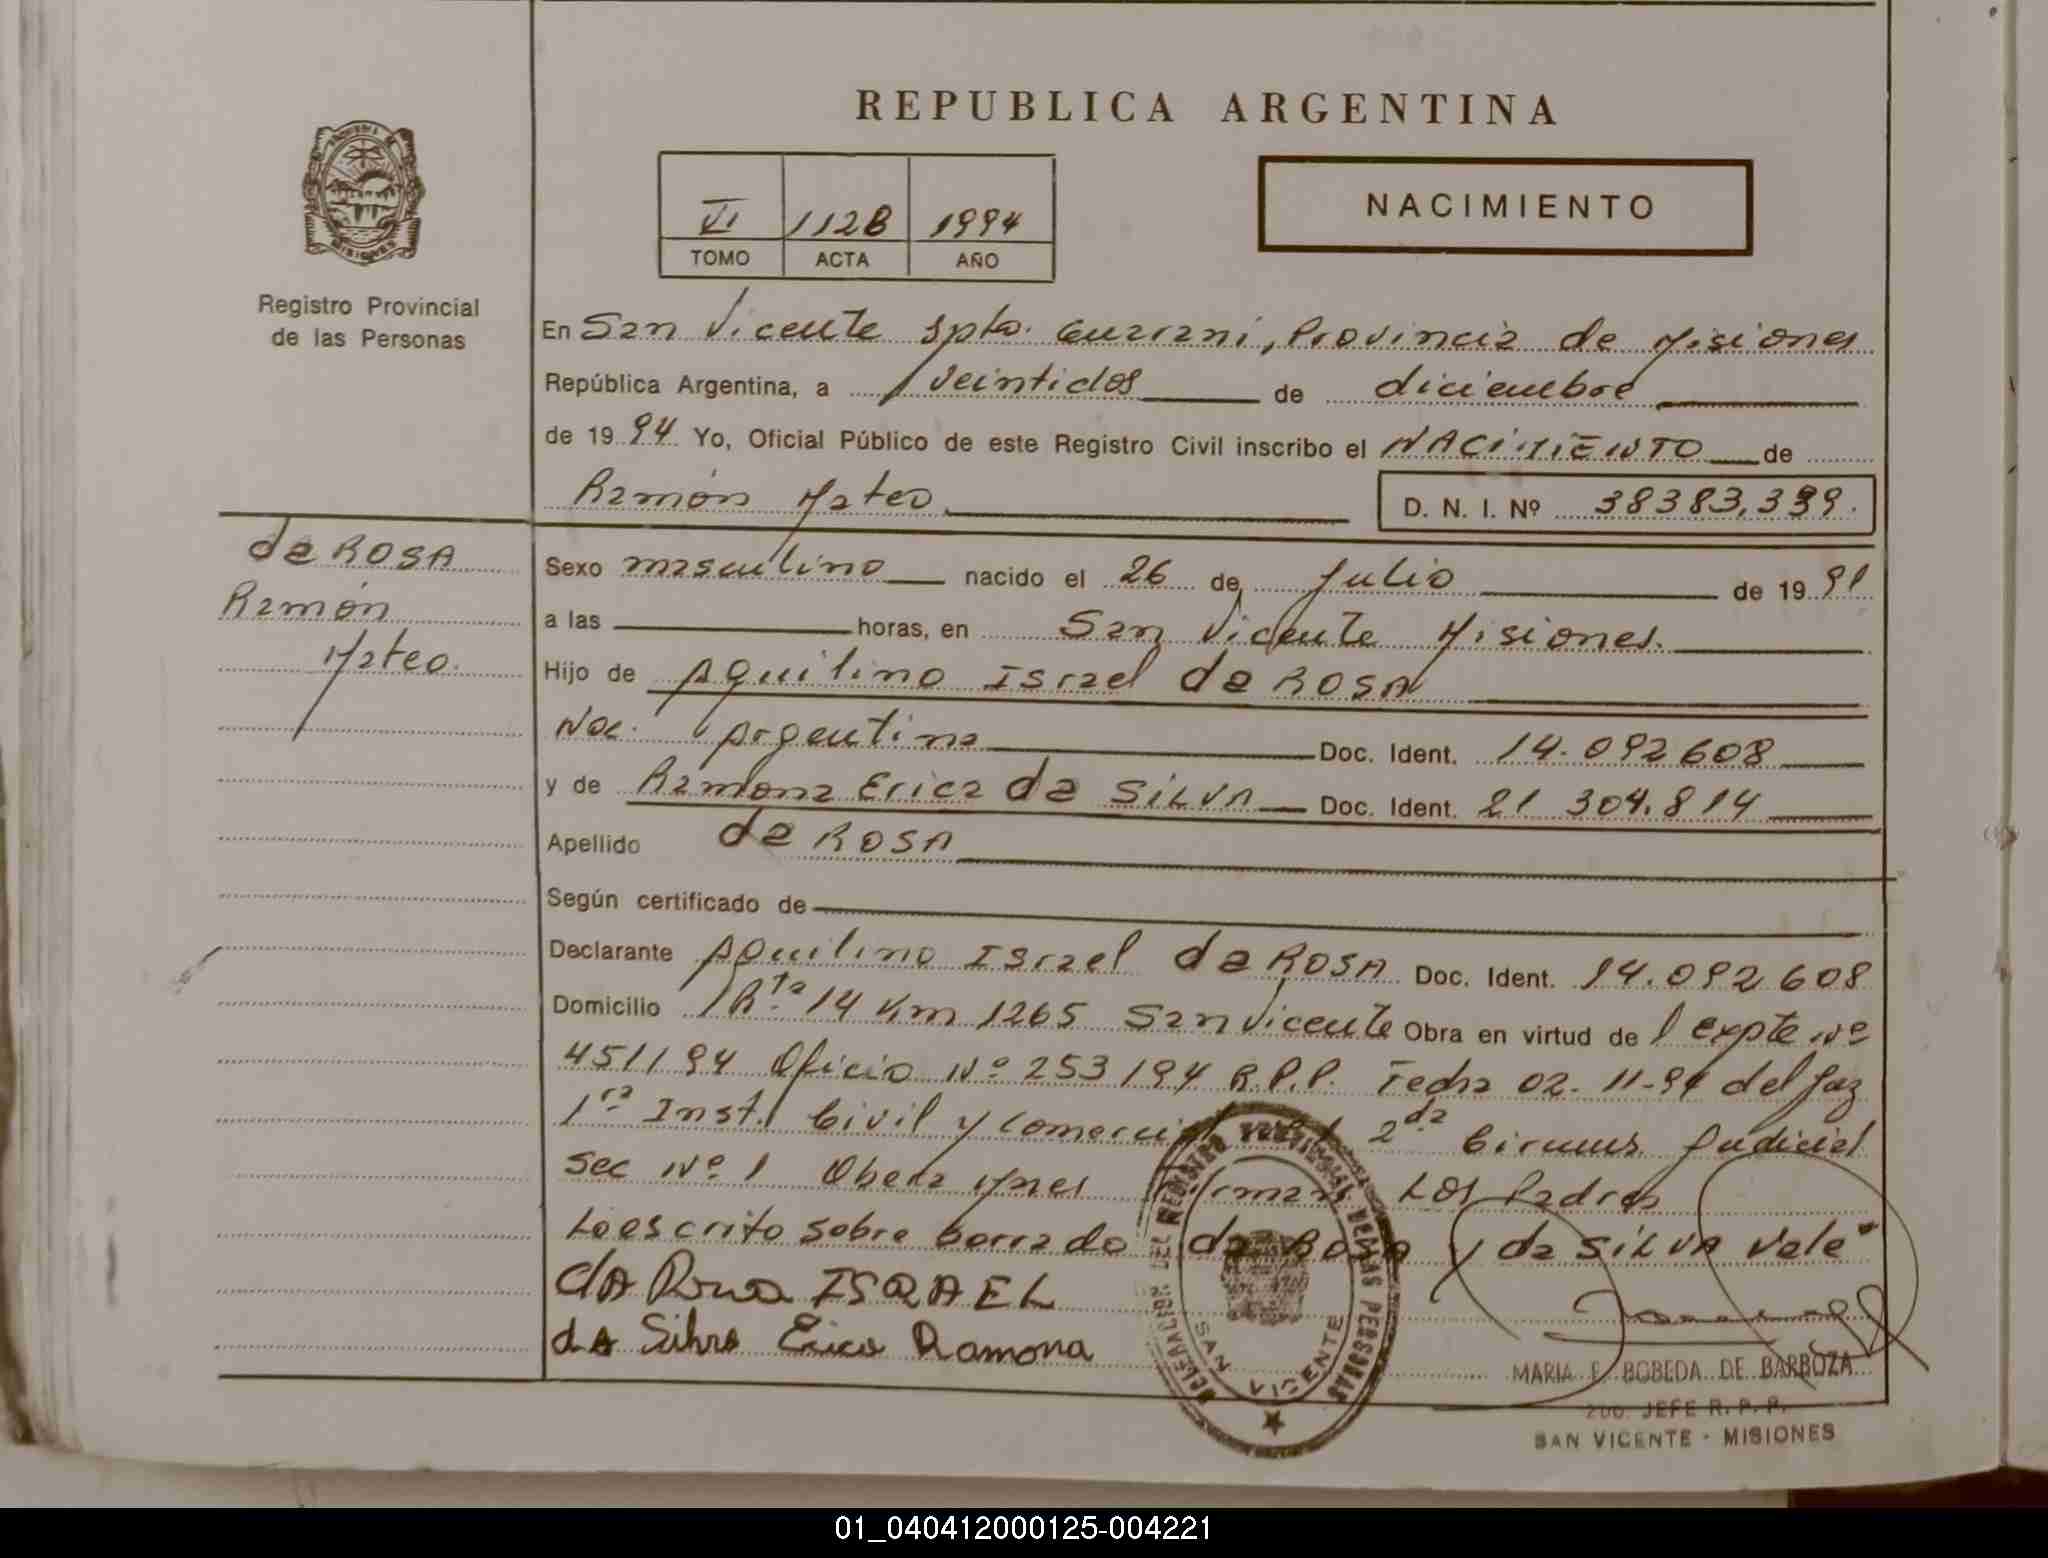 REPUBLICA ARGENTINA
NACIMIENTO
VI 1128 1994
TOMO ACTA AÑO
Registro Provincial
de las Personas
MISIONES
En San Vicente Dpto. Guarani, Provincia de Misiones
República Argentina, a veintidos de diciembre
de 1994 Yo, Oficial Público de este Registro Civil inscribo el NACIMIENTO de
Ramón Mateo
D. N. I. Nº 38383,339.
da ROSA
Ramón
Mateo.
Sexo masculino nacido el 26 de Julio de 1991
a las horas, en San Vicente Misiones.
Hijo de Aquilino Israel da ROSA
Nac. Argentina Doc. Ident. 14.092608
y de Ramona Erica da SILVA Doc. Ident. 21 304.814
Apellido da ROSA
Según certificado de
Declarante Aquilino Israel da ROSA Doc. Ident. 14.092608
Domicilio Rta 14 Km 1265 San Vicente Obra en virtud de l expte Nº
451/94 Oficio Nº 253/94 R.P.P. Fecha 02-11-94 del Juz
1ra Inst. Civil y Comercial 2da Circuns. Judicial
Sec Nº 1 Obera Mnes firman Los Padres
Lo escrito sobre borrado da Rosa y da SILVA Vale"
dA Rosa ISRAEL
dA Silva Erica Ramona
DELEGACION DEL REGISTRO PROVINCIAL DE LAS PERSONAS
SAN VICENTE
MARIA E. BOBEDA DE BARBOZA
2do. JEFE R. P. P.
SAN VICENTE - MISIONES
01_040412000125-004221